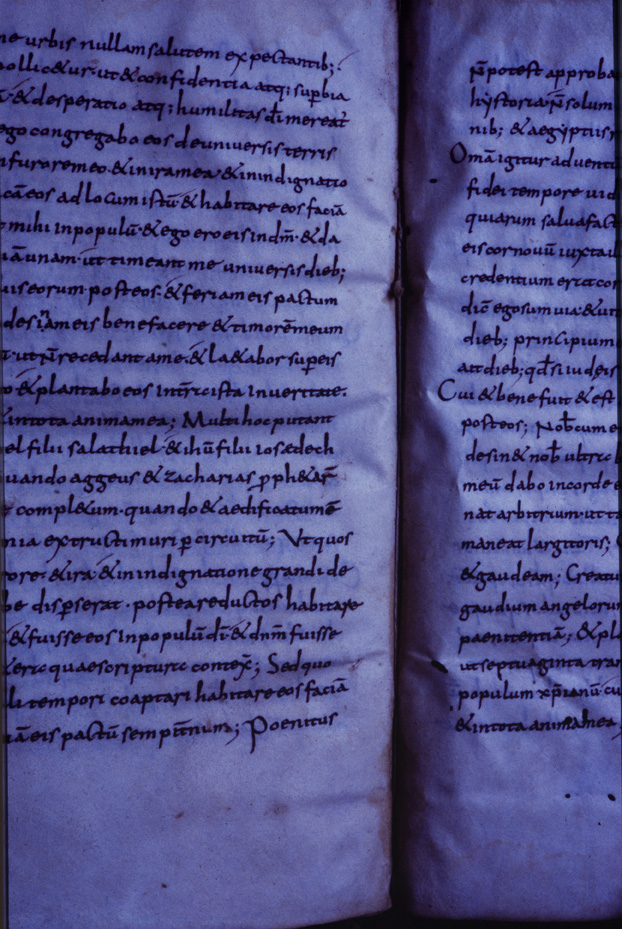 ne urbis nullam salutem expectantib;
pollic&ur· ut & confidentia atq; supbia
& desperatio atq; humilitas di mereat
ego congregabo eos de universis terris
furore meo· & in ira mea· & in indignatio
eos ad locum istū· & habitare eos faciā
mihi in populū· & ego ero eis in dm̄· & da
unam· ut timeant me universis dieb;
eorum post eos· & feriam eis pactum
eis benefacere & timorē meum
ut n̄ recedant a me· & l&abor sup eis
& plantabo eos in tr̄r ista in veritate·
in tota anima mea; Multi hoc putant
filii salathiel· & ihū filii iosedech
quando aggeus & zacharias pph&ar̄
compl&um· quando & aedificatum ē
extructi muri p circuitū; Ut quos
& ira· & in indignatione grandi de
disperserat· postea reductos habitare
& fuisse eos in populū dī· & dnm̄ fuisse
quae scripturae contex̄; Sed quo
tempori coaptari habitare eos faciā
eis pactū sempit̄num; Poenitus
n̄ potest approba
hystoria· n̄ solum
nib; & aegyptiis
Omā igitur adventu
fidei tempore vid
quiarum salva fact
eis cor novū iuxta
credentium erit cor
dic̄ ego sum via· & v
dieb; principium
ait dieb; qd̄ si iudeis
Cui & bene fuit & est
post eos; Nob̄cum e
desin& nob̄
meū dabo in corde
nat arbitrium· ut
maneat largitoris;
& gaudeam; Creatu
gaudium angelorum
paenitentiā; & pl
ut septuaginta tran
populum xp̄ianū
& in tota anima mea